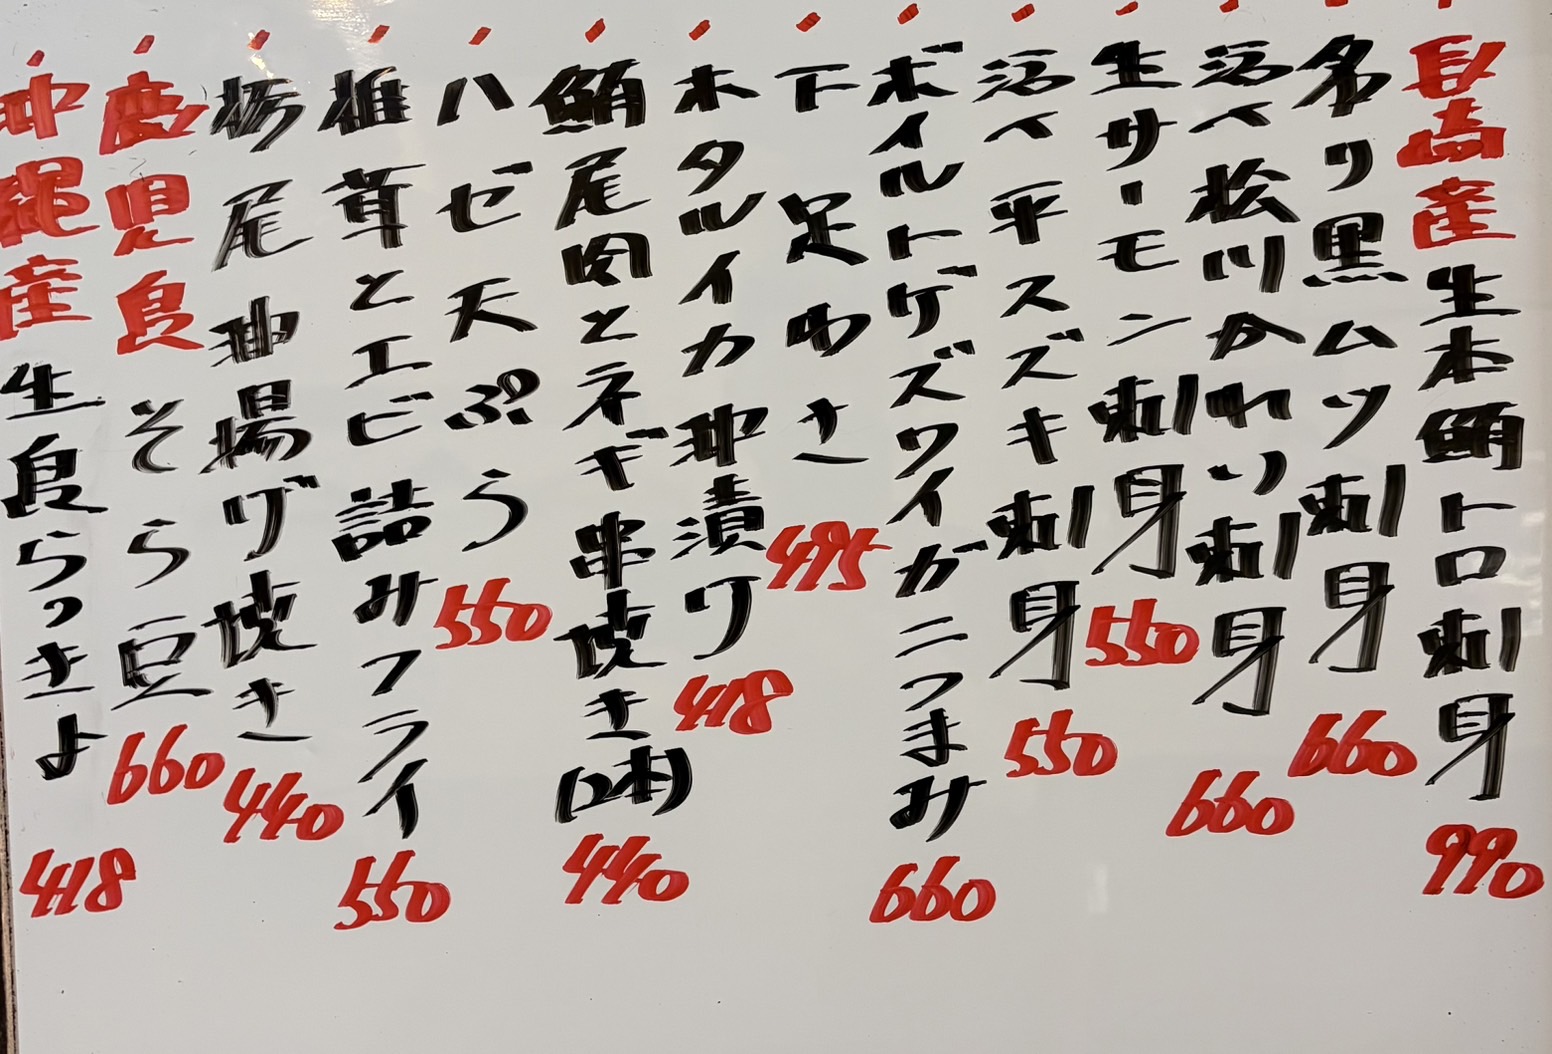 長崎産生本鮪トロ刺身 990
名残り黒ムツ刺身 660
活〆松川かれい刺身 660
生サーモン刺身 550
活〆平スズキ刺身 550
ボイルトゲズワイガニつまみ 660
下足わさ 495
ホタルイカ沖漬け 418
鮪尾肉とネギ串焼き(2本) 440
ハゼ天ぷら 550
椎茸とエビ詰みフライ 550
栃尾油揚げ焼き 440
鹿児島そら豆 660
沖縄産生島らっきょ 418